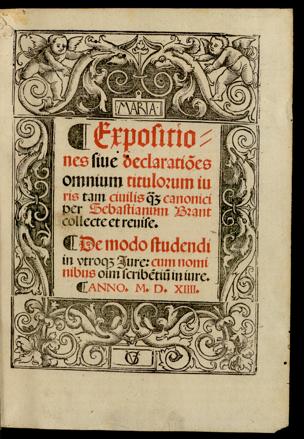 MARIA
¶ Expositio=
nes siue declaratiões
omnium titulorum iu
ris tam ciuilis qȝ canonici
per Sebastianum Brant
collecte et reuise.
¶ De modo studendi
in vtroqȝ Iure: cum nomi
nibus oim̄ scribẽtiũ in iure.
¶ ANNO. M. D. XIIII.